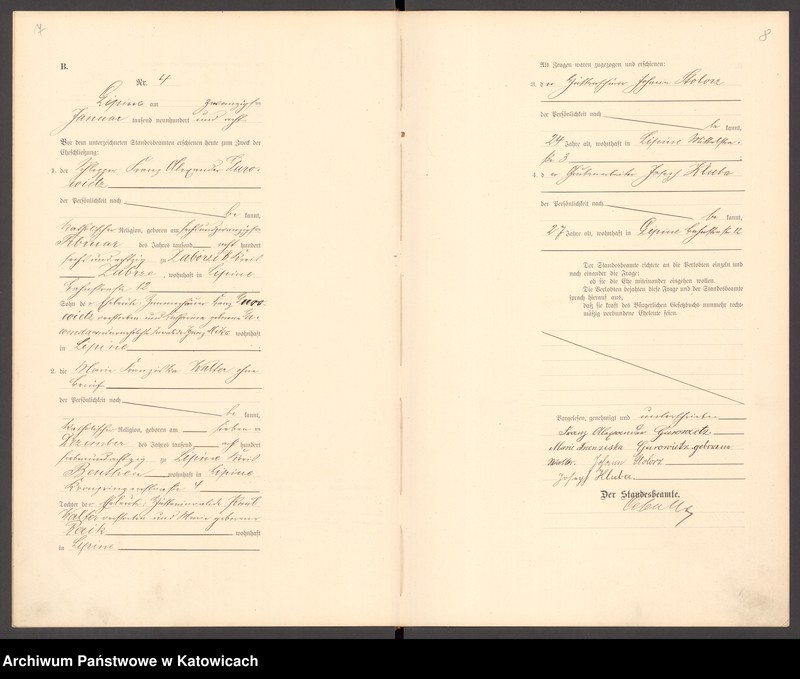 7
B.
Nr. 4
Lipine am zwanzigsten
Januar tausend neunhundert und acht
Vor dem unterzeichneten Standesbeamten erschienen heute zum Zweck der
Eheschließung:
1. der Schlepper Franz Alexander Guro-
wietz
der Persönlichkeit nach
be kannt,
katholischer Religion, geboren am sechsundzwanzigsten
Februar des Jahres tausend acht hundert
sechsundachtzig zu Zaborze Kreis
Zabrze, wohnhaft in Lipine
Bahnstraße 12
Sohn der Eheleute Franz Guro-
wietz verstorben und Katharina geborene
wohnhaft
in Lipine
2. die Marie Franziska Walter ohne
Beruf
der Persönlichkeit nach
be kannt,
katholischer Religion, geboren am sieben
Dezember des Jahres tausend acht hundert
siebenundachtzig zu Lipine Kreis
Beuthen, wohnhaft in Lipine
Kronprinzenstraße 4
Tochter der Eheleute Hütteninvalide
Walter verstorben und Marie geborene
wohnhaft
in Lipine
8
Als Zeugen waren zugezogen und erschienen:
3. der Johann Stolorz
der Persönlichkeit nach
be kannt,
24 Jahre alt, wohnhaft in Lipine Mittelstra-
ße 3
4. der Grubenarbeiter Josef Kluba
der Persönlichkeit nach
be kannt,
27 Jahre alt, wohnhaft in Lipine Bahnstraße 12
Der Standesbeamte richtete an die Verlobten einzeln und
nach einander die Frage:
ob sie die Ehe miteinander eingehen wollen.
Die Verlobten bejahten diese Frage und der Standesbeamte
sprach hierauf aus,
daß sie kraft des Bürgerlichen Gesetzbuchs nunmehr recht-
mäßig verbundene Eheleute seien.
Vorgelesen, genehmigt und unterschrieben
Franz Alexander Gurowietz
Marie Franziska Gurowietz geborene
Walter. Johann Stolorz
Josef Kluba.
Der Standesbeamte.
Archiwum Państwowe w Katowicach